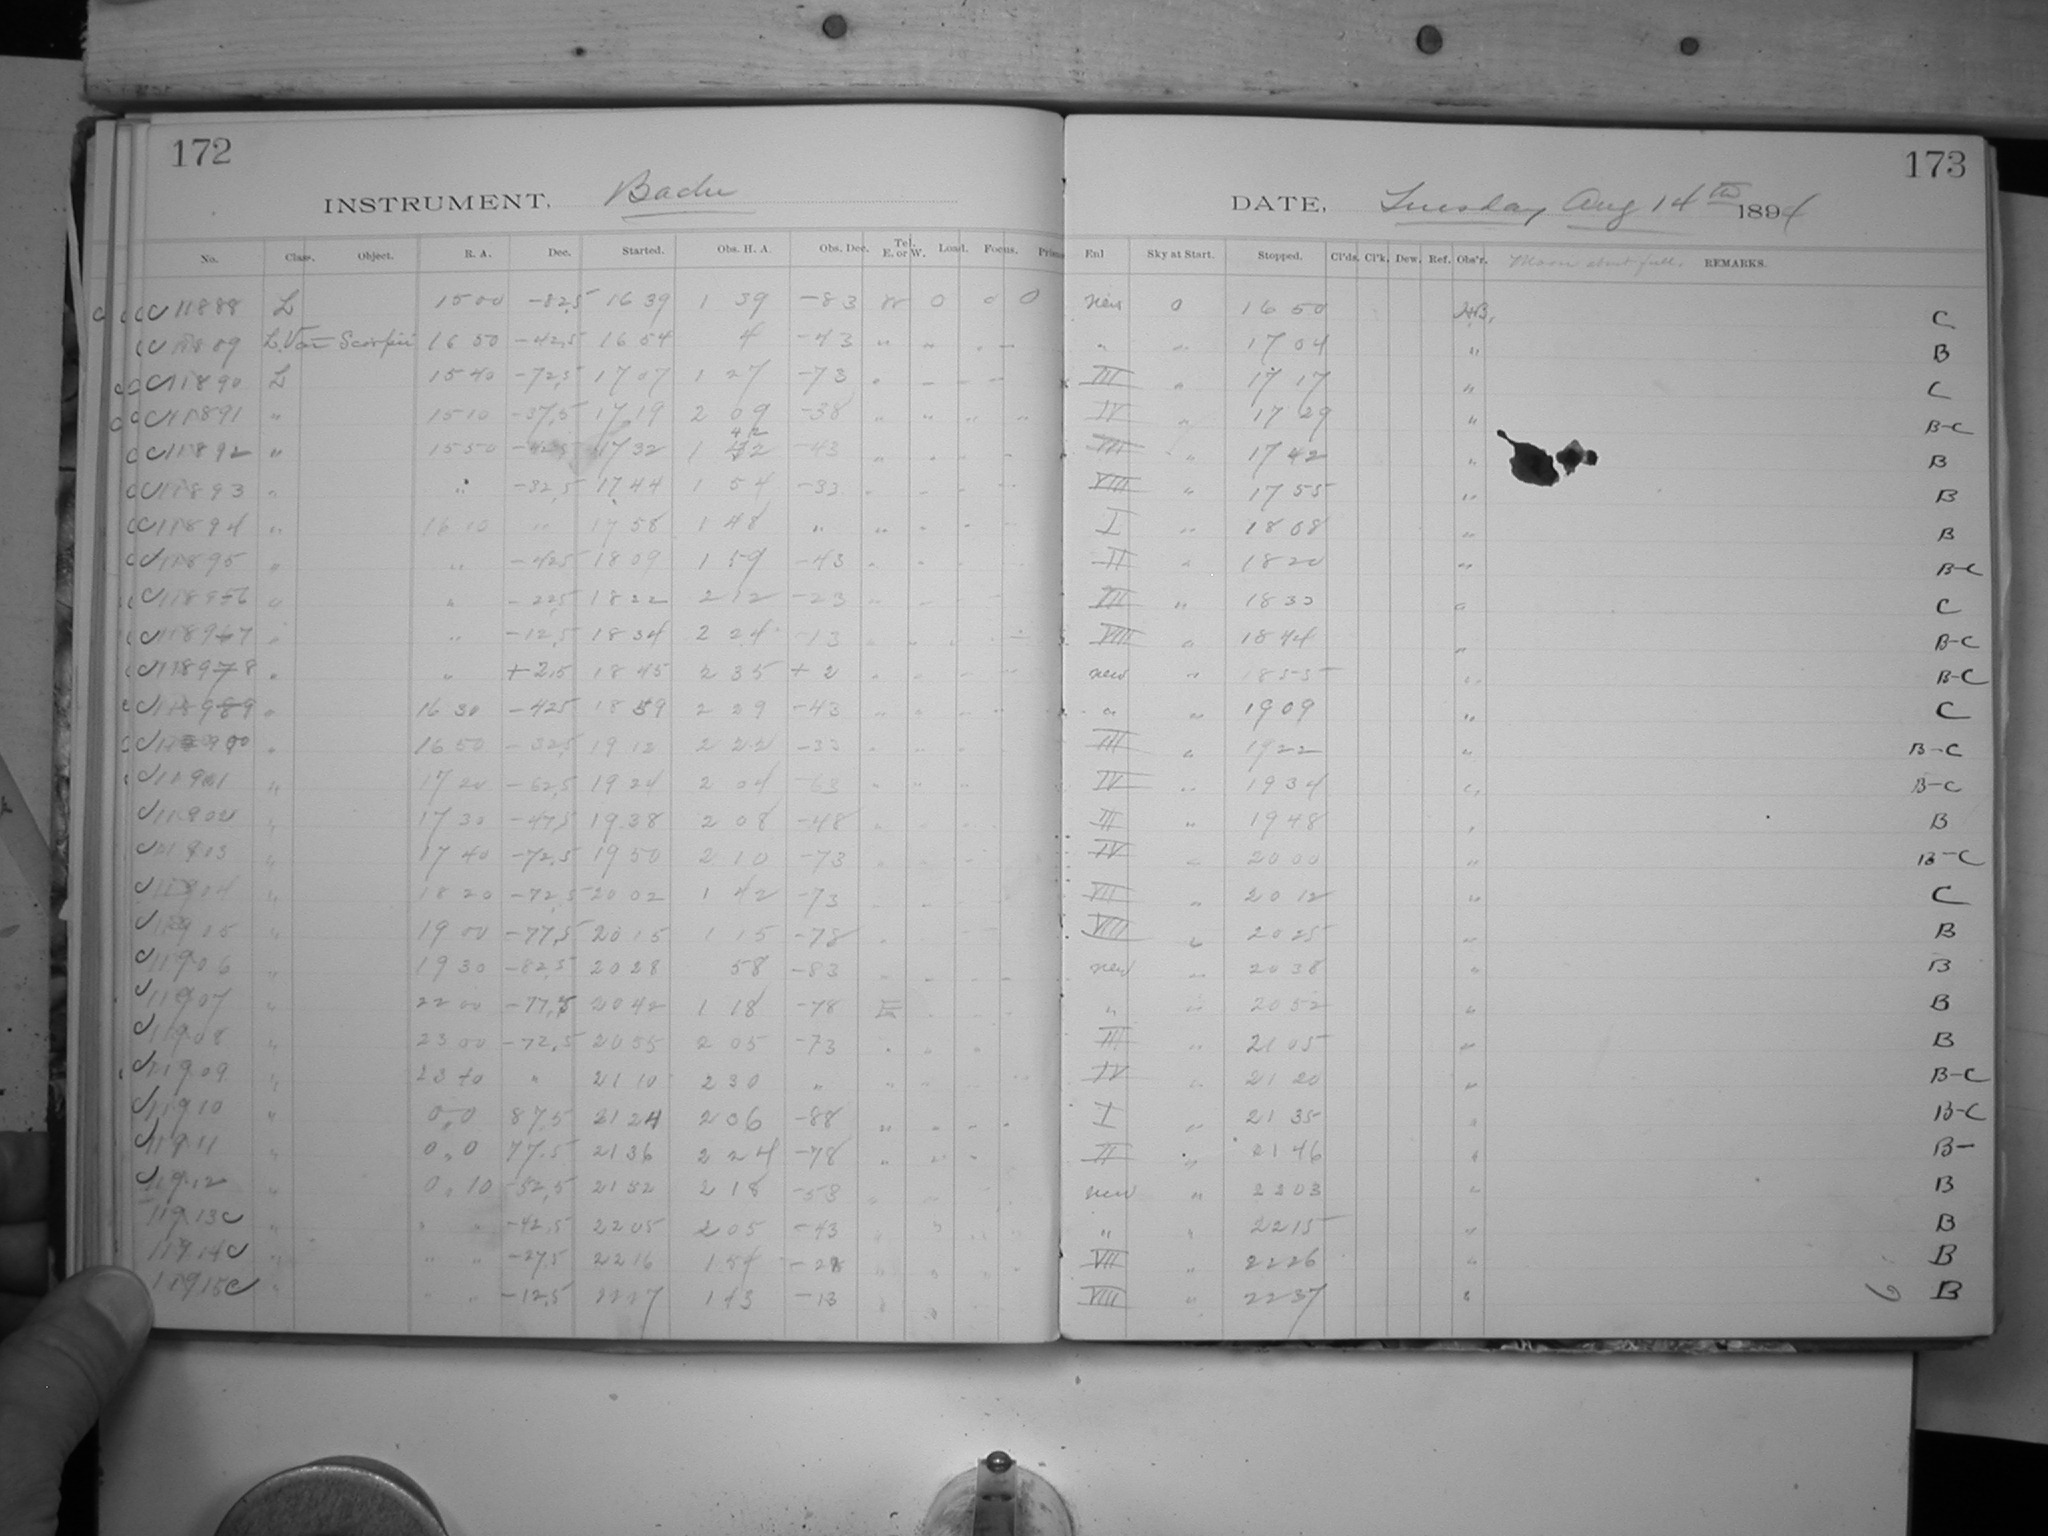 172
INSTRUMENT. Bache
No. Class. Object. R. A. Dec. Started. Obs. H. A. Obs. Dec. Tel. E. or W. Load. Focus. Prism
C 11888 L 15 00 -82.5 16 39 1 39 -83 W 0 0 0
C 11889 L Var Scorpii 16 50 -42.5 16 54 4 -43 " "
C 11890 L 15 40 -72.5 17 07 1 27 -73 "
C 11891 " 15 10 -37.5 17 19 2 09 -38 " " " "
C 11892 " 15 50 -42.5 17 32 1 42 -43 "
C 11893 " " -32.5 17 44 1 54 -33 "
C 11894 " 16 10 " 17 58 1 48 " "
C 11895 " " -42.5 18 09 1 59 -43 "
C 11896 " " -22.5 18 22 2 12 -23 "
C 11897 " " -12.5 18 34 2 24 -13 "
C 11898 " " +2.5 18 45 2 35 +2 "
C 11899 " 16 30 -42.5 18 59 2 29 -43 "
C 11900 " 16 50 -32.5 19 12 2 22 -33 "
C 11901 " 17 20 -62.5 19 24 2 04 -63 "
C 11902 " 17 30 -47.5 19 38 2 08 -48 "
C 11903 " 17 40 -72.5 19 50 2 10 -73 "
C 11904 " 18 20 -72.5 20 02 1 42 -73 "
C 11905 " 19 00 -77.5 20 15 1 15 -78 "
C 11906 " 19 30 -82.5 20 28 58 -83 "
C 11907 " 22 00 -77.5 20 42 1 18 -78 E
C 11908 " 23 00 -72.5 20 55 2 05 -73 "
C 11909 " 23 40 " 21 10 2 30 " "
C 11910 " 0 0 87.5 21 24 2 06 -88 "
C 11911 " 0 0 77.5 21 36 2 24 -78 "
C 11912 " 0 10 -52.5 21 52 2 18 -53 "
11913 C " " " -42.5 22 05 2 05 -43 "
11914 C " " " -27.5 22 16 1 54 -28 "
11915 C " " " -12.5 22 27 1 43 -13 "
173
DATE, Tuesday Aug 14th 1894
Enl Sky at Start. Stopped. Cl'ds. Cl'k. Dew. Ref. Obs'r. Moon about full. REMARKS.
new 0 16 50 C
" " 17 04 " B
III " 17 17 " C
IV " 17 29 " B-C
VII " 17 42 " B
VIII " 17 55 " B
I " 18 08 " B
II " 18 20 " B-C
VII " 18 33 " C
VIII " 18 44 " B-C
new " 18 55 " B-C
" " 19 09 " C
III " 19 22 " B-C
IV " 19 34 " B-C
III " 19 48 " B
IV " 20 00 " B-C
VII " 20 12 " C
VIII " 20 25 " B
new " 20 38 " B
" " 20 52 " B
III " 21 05 " B
IV " 21 20 " B-C
I " 21 35 " B-C
II " 21 46 " B-
new " 22 03 " B
" " 22 15 " B
VII " 22 26 " B
VIII " 22 37 " B